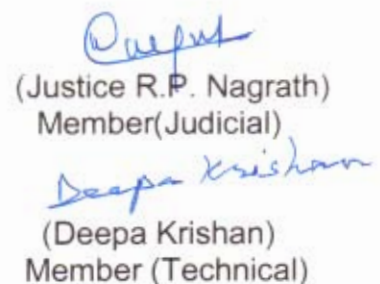 (Justice R.P. Nagrath)
Member(Judicial)
Deepa Krishan
(Deepa Krishan)
Member (Technical)